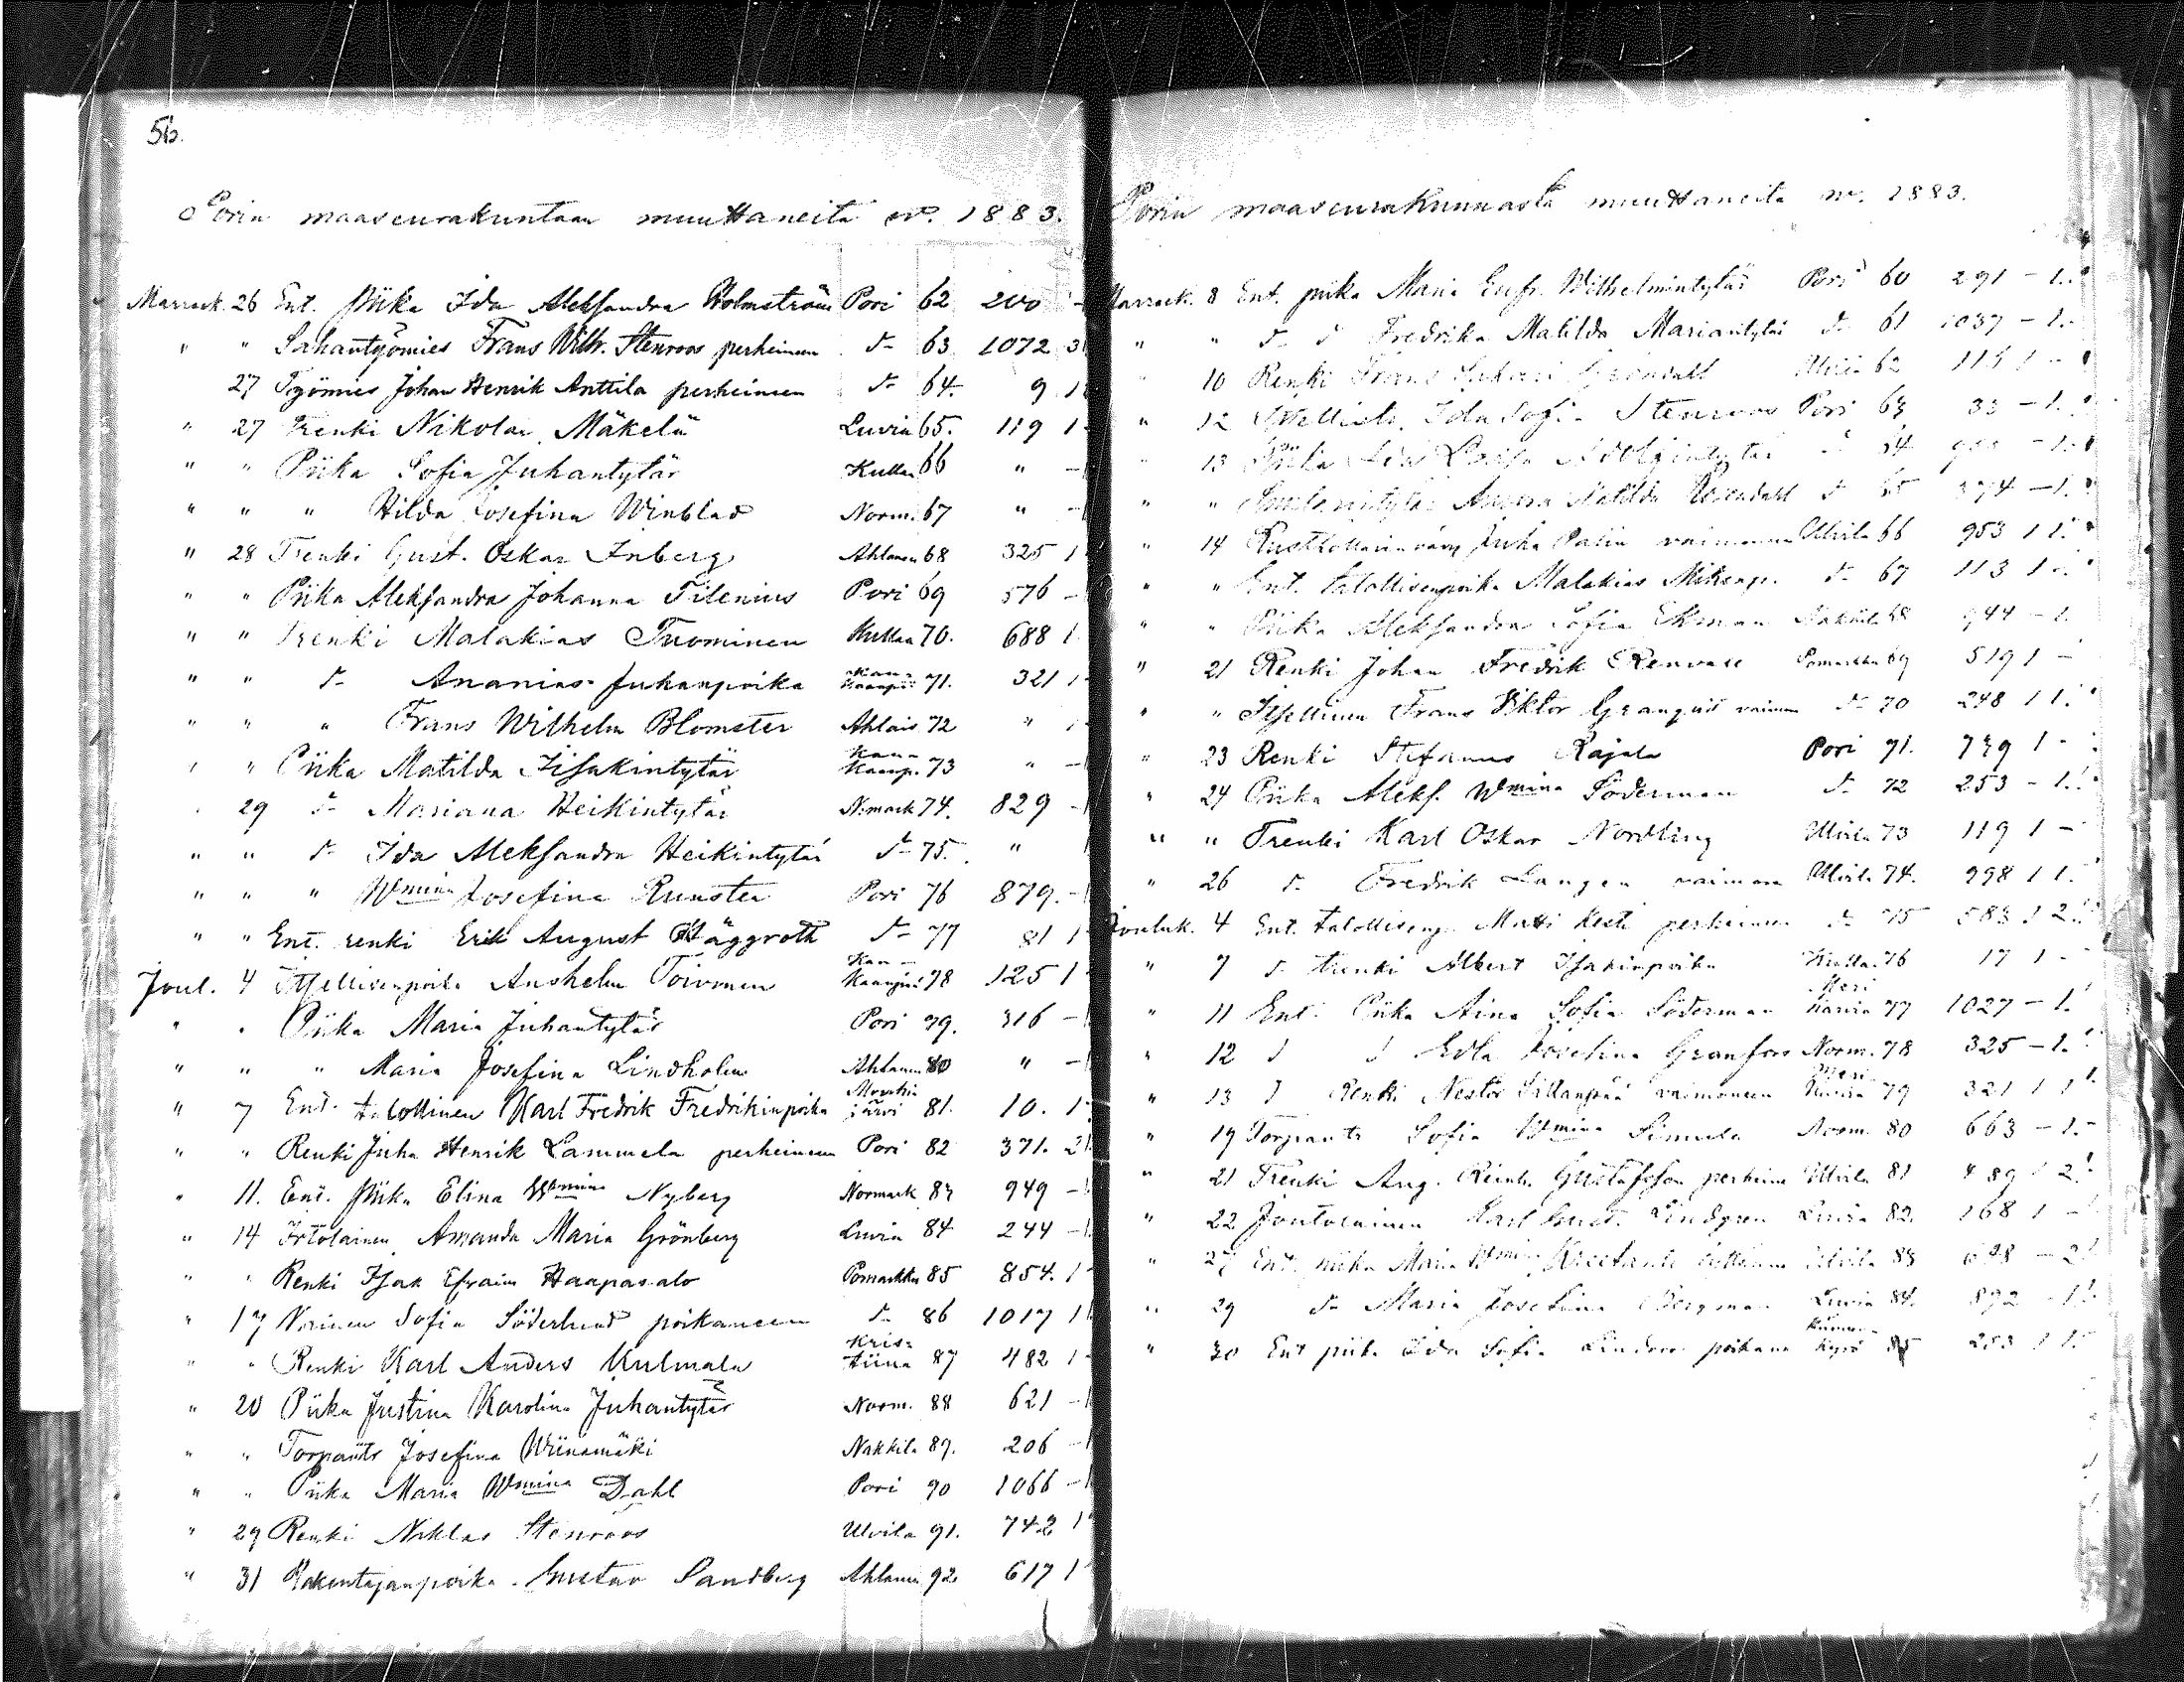 56.
Porin maaseurakuntaan muuttaneita v. 1883.
Marrask. 26 Ent. piika Ida Aleksandra Holmström Pori 62 200 -
" " Sahantyömies Frans Wilh. Stenroos perheineen d:o 63 1072 3
27 Työmies Johan Henrik Anttila perheineen d:o 64. 9 1
" 27 Trenki Nikolai Mäkelä Luvia 65. 119 1
" " Piika Sofia Juhantytär Kullaa 66 " -
" " " Hilda Josefina Winblad Norm. 67 " -
" 28 Trenki Gust. Oskar Inberg Ahlainen 68 325 1
" " Piika Aleksandra Johanna Tilenius Pori 69 576 -
" " Trenki Malakias Tuominen Kullaa 70. 688 1
" " d:o Ananias Juhanpoika Kankaanpää 71. 321 1
" " " Frans Wilhelm Blomster Ahlais 72 " 1
" " Piika Matilda Iisakintytär Kankaanp. 73 " -
" 29 d:o Mariana Heikintytär N:mark 74. 829 -
" " d:o Ida Aleksandra Heikintytär d:o 75. "
" " " Wmina Josefina Runster Pori 76 879. -
" " Ent. renki Erik August Häggroth d:o 77 81 1
Joul. 4 Itsellisenpoika Anshelm Toivonen Kankaanpää 78 125 1
" " Piika Maria Juhantytär Pori 79. 316 -
" " " Maria Josefina Lindholm Ahlainen 80 " -
" 7 Ent. talollinen Karl Fredrik Fredrikinpoika Mouhijärvi 81. 10. 1
" " Renki Juha Henrik Lammela perheineen Pori 82 371. 2
" 11. Ent. piika Elina Wmina Nyberg Normark 83 949 -
" 14 Irtolainen Amanda Maria Grönberg Luvia 84 244 -
" " Renki Isak Efraim Haapasalo Pomarkku 85 854. 1
" 17 Nainen Sofia Söderlund poikaneen d:o 86 1017 1
" " Renki Karl Anders Kulmala Kristiina 87 482 1
" 20 Piika Justina Karolina Juhantytär Norm. 88 621 -
" " Torpantr Josefina Wiinamäki Nakkila 89. 206 -
" " Piika Maria Wmina Dahl Pori 90 1066 -
" 29 Renki Niklas Stenroos Ulvila 91. 742 1
" 31 Rakentajanpoika Gustav Sandberg Ahlainen 92 617 1
Porin maaseurakunnasta muuttaneita v. 1883.
Marrask. 8 Ent. piika Maria Eufr. Wilhelmintytär Pori 60 291 - 1.
" " d:o d:o Fredrika Matilda Mariantytär d:o 61 1037 - 1.
" 10 Renki Frans Sakari Grönvall Ulvila 62 115 1 -
" 12 Itsellistr. Ida Sofia Stenroos Pori 63 33 - 1.
" 13 Piika Ida Lovisa Adolfintytär d:o 64 - 1.
" " Aurora Matilda Rosendahl d:o 65 374 - 1.
" 14 Juha Palin vaimoneen Ulvila 66 953 1 1.
" " Ent. talollisenpoika Malakias Mikonp. d:o 67 113 1 -
" " Piika Aleksandra Sofia Ekman Nakkila 68 944 - 1.
" 21 Renki Johan Fredrik Renvall Pomarkku 69 519 1 -
" " Itsellinen Frans Viktor Granqvist vaimon d:o 70 248 1 1.
" 23 Renki Stefanus Rajala Pori 71. 739 1 -
" 24 Piika Aleks. Wmina Söderman d:o 72 253 - 1.
" " Trenki Karl Oskar Nordling Ulvila 73 119 1 -
" 26 d:o Fredrik Langen vaimon Ulvila 74. 998 1 1.
Jouluk. 4 Ent. talollisenp. Matti Kesti perheineen d:o 75 583 1 2.
" 7 d:o trenki Albert Isakinpoika Kullaa 76 17 1 -
" 11 Ent. Piika Aina Sofia Söderman Merikarvia 77 1027 - 1.
" 12 d:o d:o Edla Josefina Granfors Norm. 78 325 - 1.
" 13 d:o Renki Nestor Sillanpää vaimoneen Merikarvia 79 321 1 1
" 19 Torpantr Sofia Wmina Simula Norm. 80 663 - 1.
" 21 Trenki Aug. Reinh. Gustafsson perheine Ulvila 81 489 1 2.
" 22 Joutolainen Karl Gust. Lindgren Luvia 82. 168 1 -
" 27 Ent. piika Maria Wmina tyttönsä Ulvila 83 698 - 2
" 29 d:o Maria Josefina Bergman Luvia 84. 892 - 1.
" 30 Ent piika Ida Sofia Lindroos poikane Hämeenkyrö 85 253 1 1.